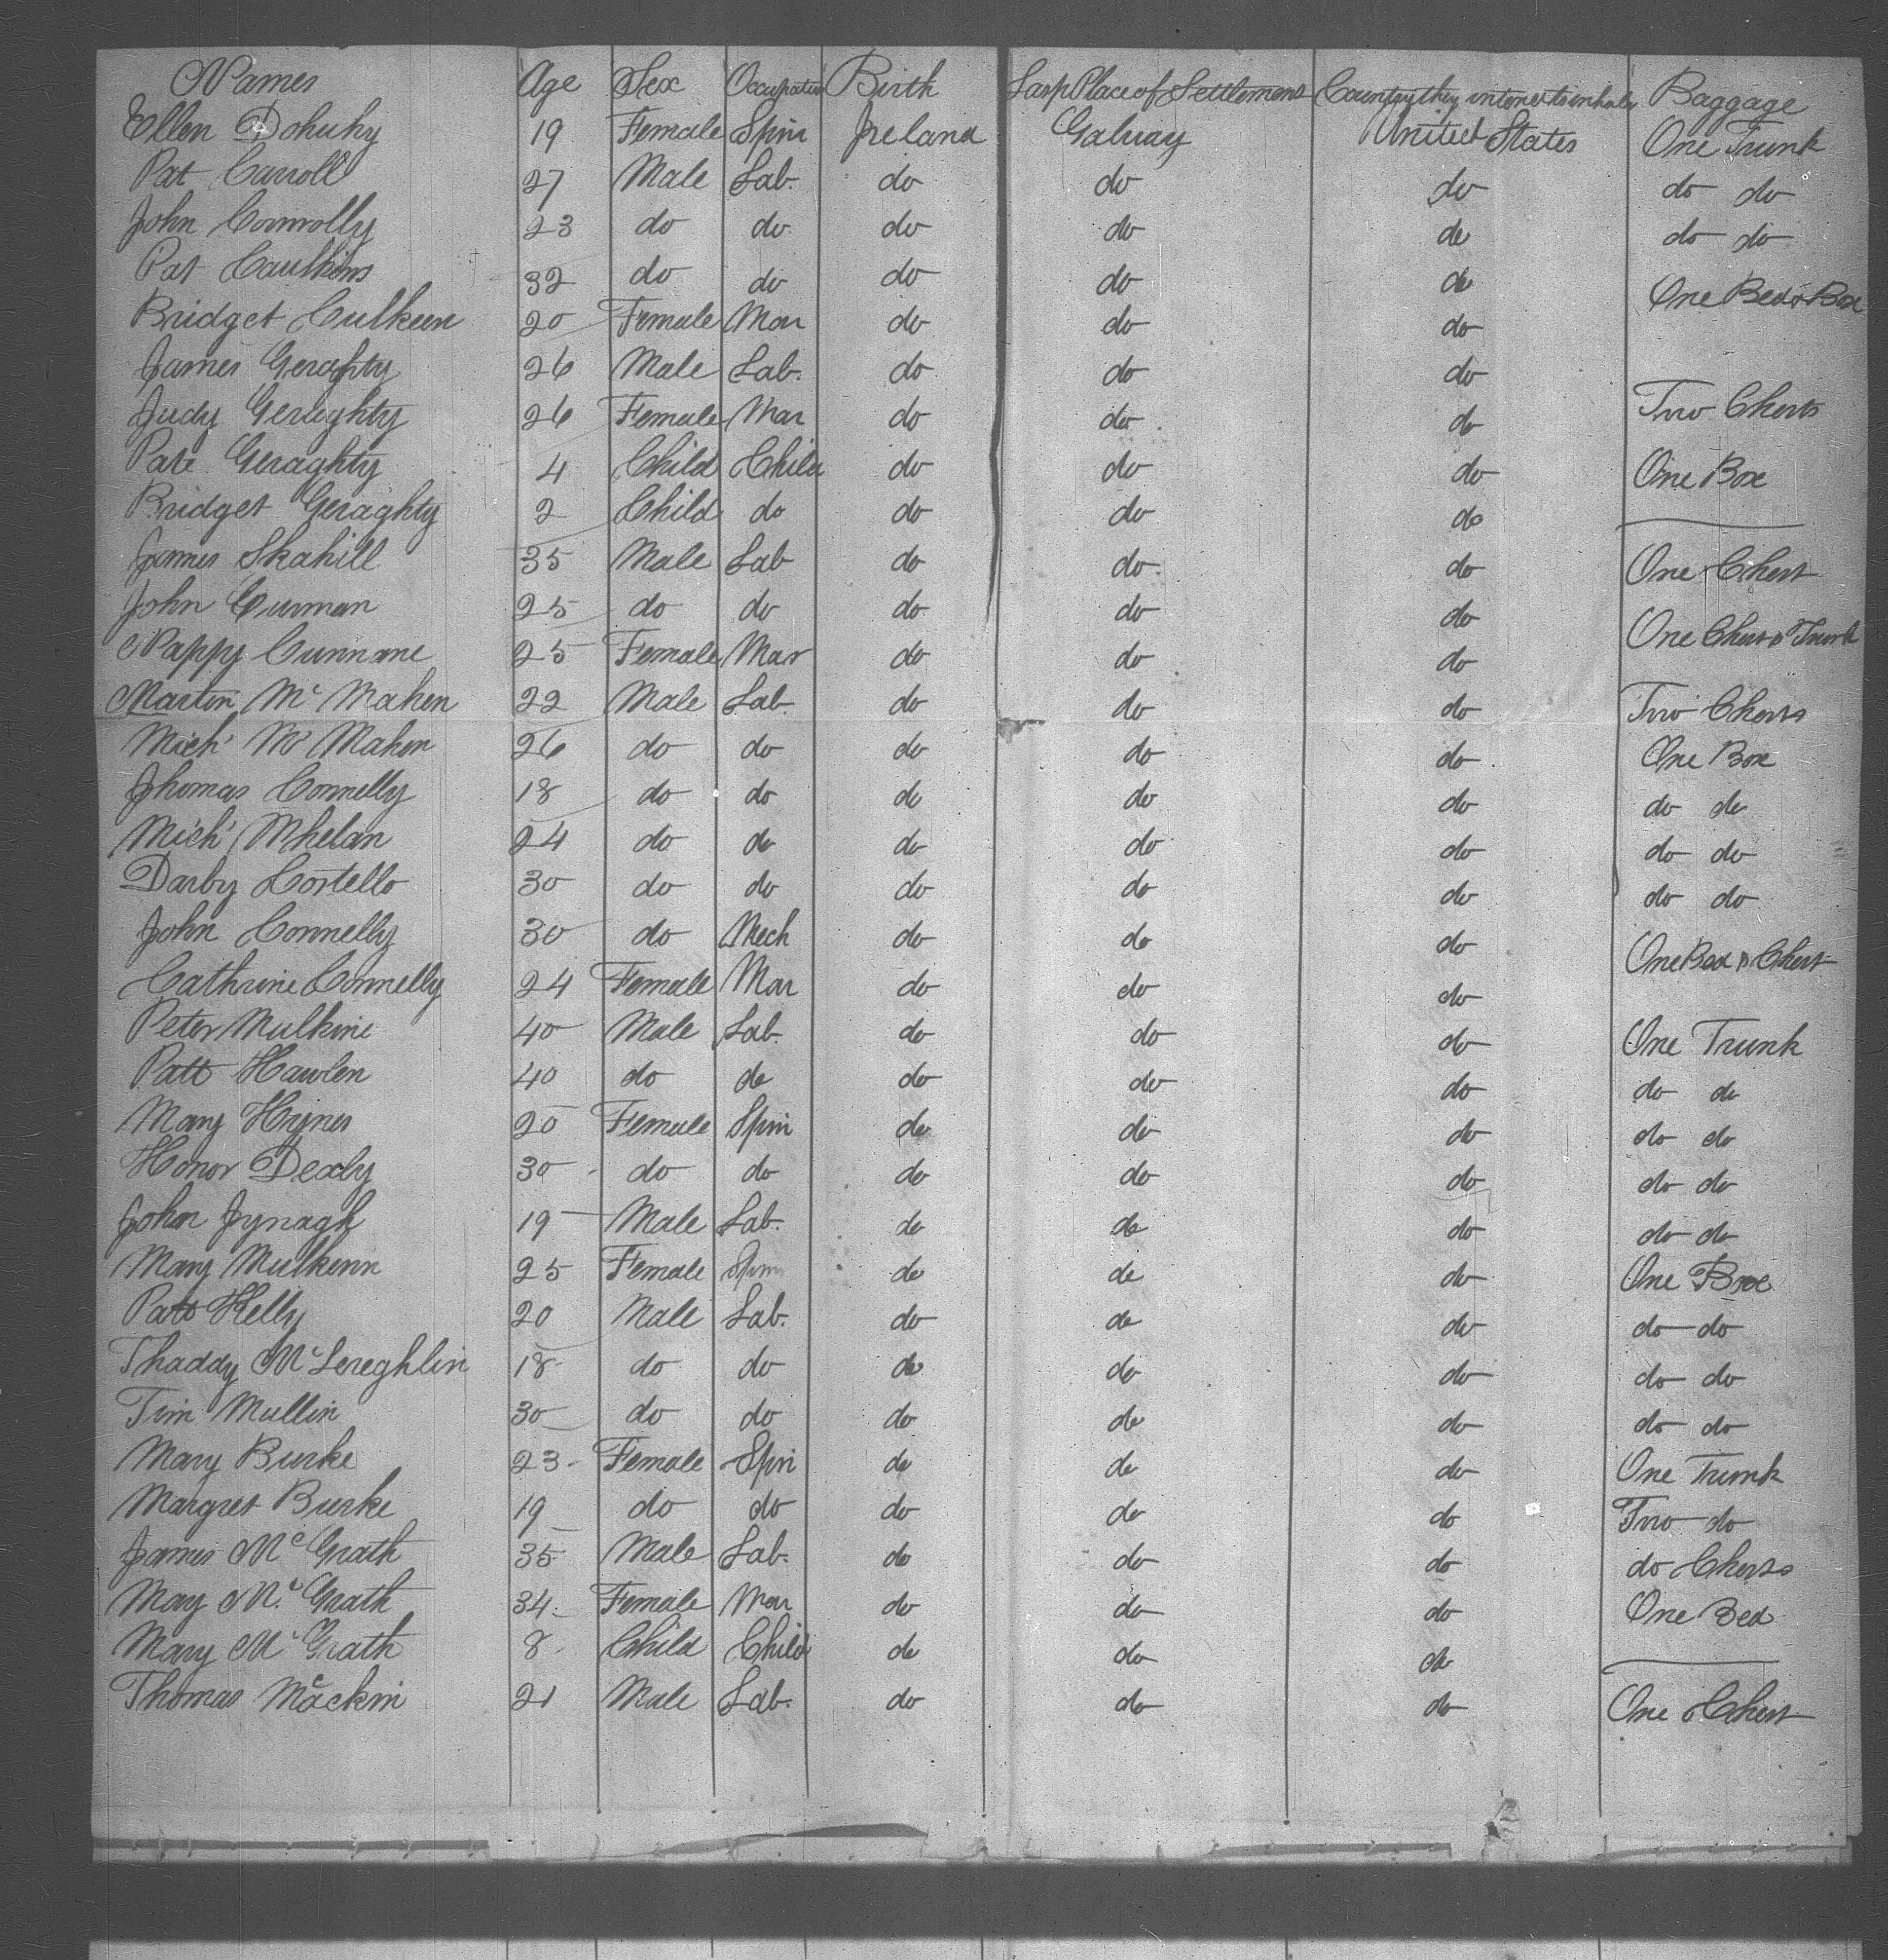 Names Age Sex Occupation Birth Last Place of Settlement Country they intend to inhabit Baggage
Ellen Dohuhy 19 Female Spin Ireland Galway United States One Trunk
Pat Carroll 27 Male Lab. do do do do do
John Connolly 23 do do do do do do do
Pat Caulkins 32 do do do do do One Bed & Box
Bridget Culkeen 20 Female Mar do do do
James Geraghty 26 Male Lab. do do do
Judy Geraghty 26 Female Mar do do do Two Chests
Pate Geraghty 4 Child Child do do do One Box
Bridget Geraghty 2 Child do do do do
James Skahill 35 Male Lab do do do One Chest
John Curman 25 do do do do do
Pappy Cunnane 25 Female Mar do do do One Chest & Trunk
Martin Mc Mahen 22 Male Lab. do do do Two Chests
Mich' Mc Mahon 26 do do do do do One Box
Thomas Connelly 18 do do do do do do do
Mich' Whelan 24 do do do do do do do
Darby Costello 30 do do do do do do do
John Connelly 30 do Mech do do do One Bed & Chest
Cathrine Connelly 24 Female Mar do do do
Peter Mulkine 40 Male Lab. do do do One Trunk
Patt Hawlen 40 do do do do do do do
Mary Hynes 20 Female Spin do do do do do
Honor Dexly 30 do do do do do do do
John Jynagh 19 Male Lab. do do do do do
Mary Mulkenn 25 Female Spin do do do One Box
Patt Kelly 20 Male Lab. do do do do do
Thaddy Mc Lereghlin 18 do do do do do do do
Tim Mullin 30 do do do do do do do
Mary Burke 23 Female Spin do do do One Trunk
Margret Burke 19 do do do do do Two do
James Mc Grath 35 Male Lab. do do do do Chests
May Mc Grath 34 Female Mar do do do One Bed
Mary Mc Grath 8 Child Child do do do
Thomas Mackin 21 Male Lab. do do do One Chest